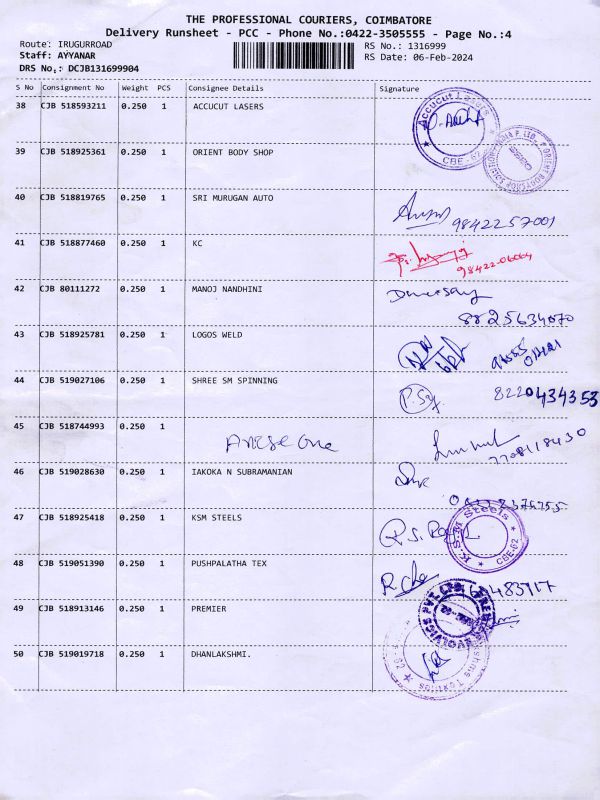 THE PROFESSIONAL COURIERS, COIMBATORE
Delivery Runsheet - PCC - Phone No.:0422-3505555 - Page No.:4
Route: IRUGURROAD
RS No.: 1316999
Staff: AYYANAR
RS Date: 06-Feb-2024
DRS No,: DCJB131699904
S No Consignment No Weight PCS Consignee Details Signature
38 CJB 518593211 0.250 1 ACCUCUT LASERS
Accucut Lasers
CBE-62
39 CJB 518925361 0.250 1 ORIENT BODY SHOP
40 CJB 518819765 0.250 1 SRI MURUGAN AUTO
9842257001
41 CJB 518877460 0.250 1 KC
42 CJB 80111272 0.250 1 MANOJ NANDHINI
8825634070
43 CJB 518925781 0.250 1 LOGOS WELD
44 CJB 519027106 0.250 1 SHREE SM SPINNING
8220434353
45 CJB 518744993 0.250 1
46 CJB 519028630 0.250 1 IAKOKA N SUBRAMANIAN
47 CJB 518925418 0.250 1 KSM STEELS
K.S.M Steels
CBE-62
48 CJB 519051390 0.250 1 PUSHPALATHA TEX
49 CJB 518913146 0.250 1 PREMIER
50 CJB 519019718 0.250 1 DHANLAKSHMI.